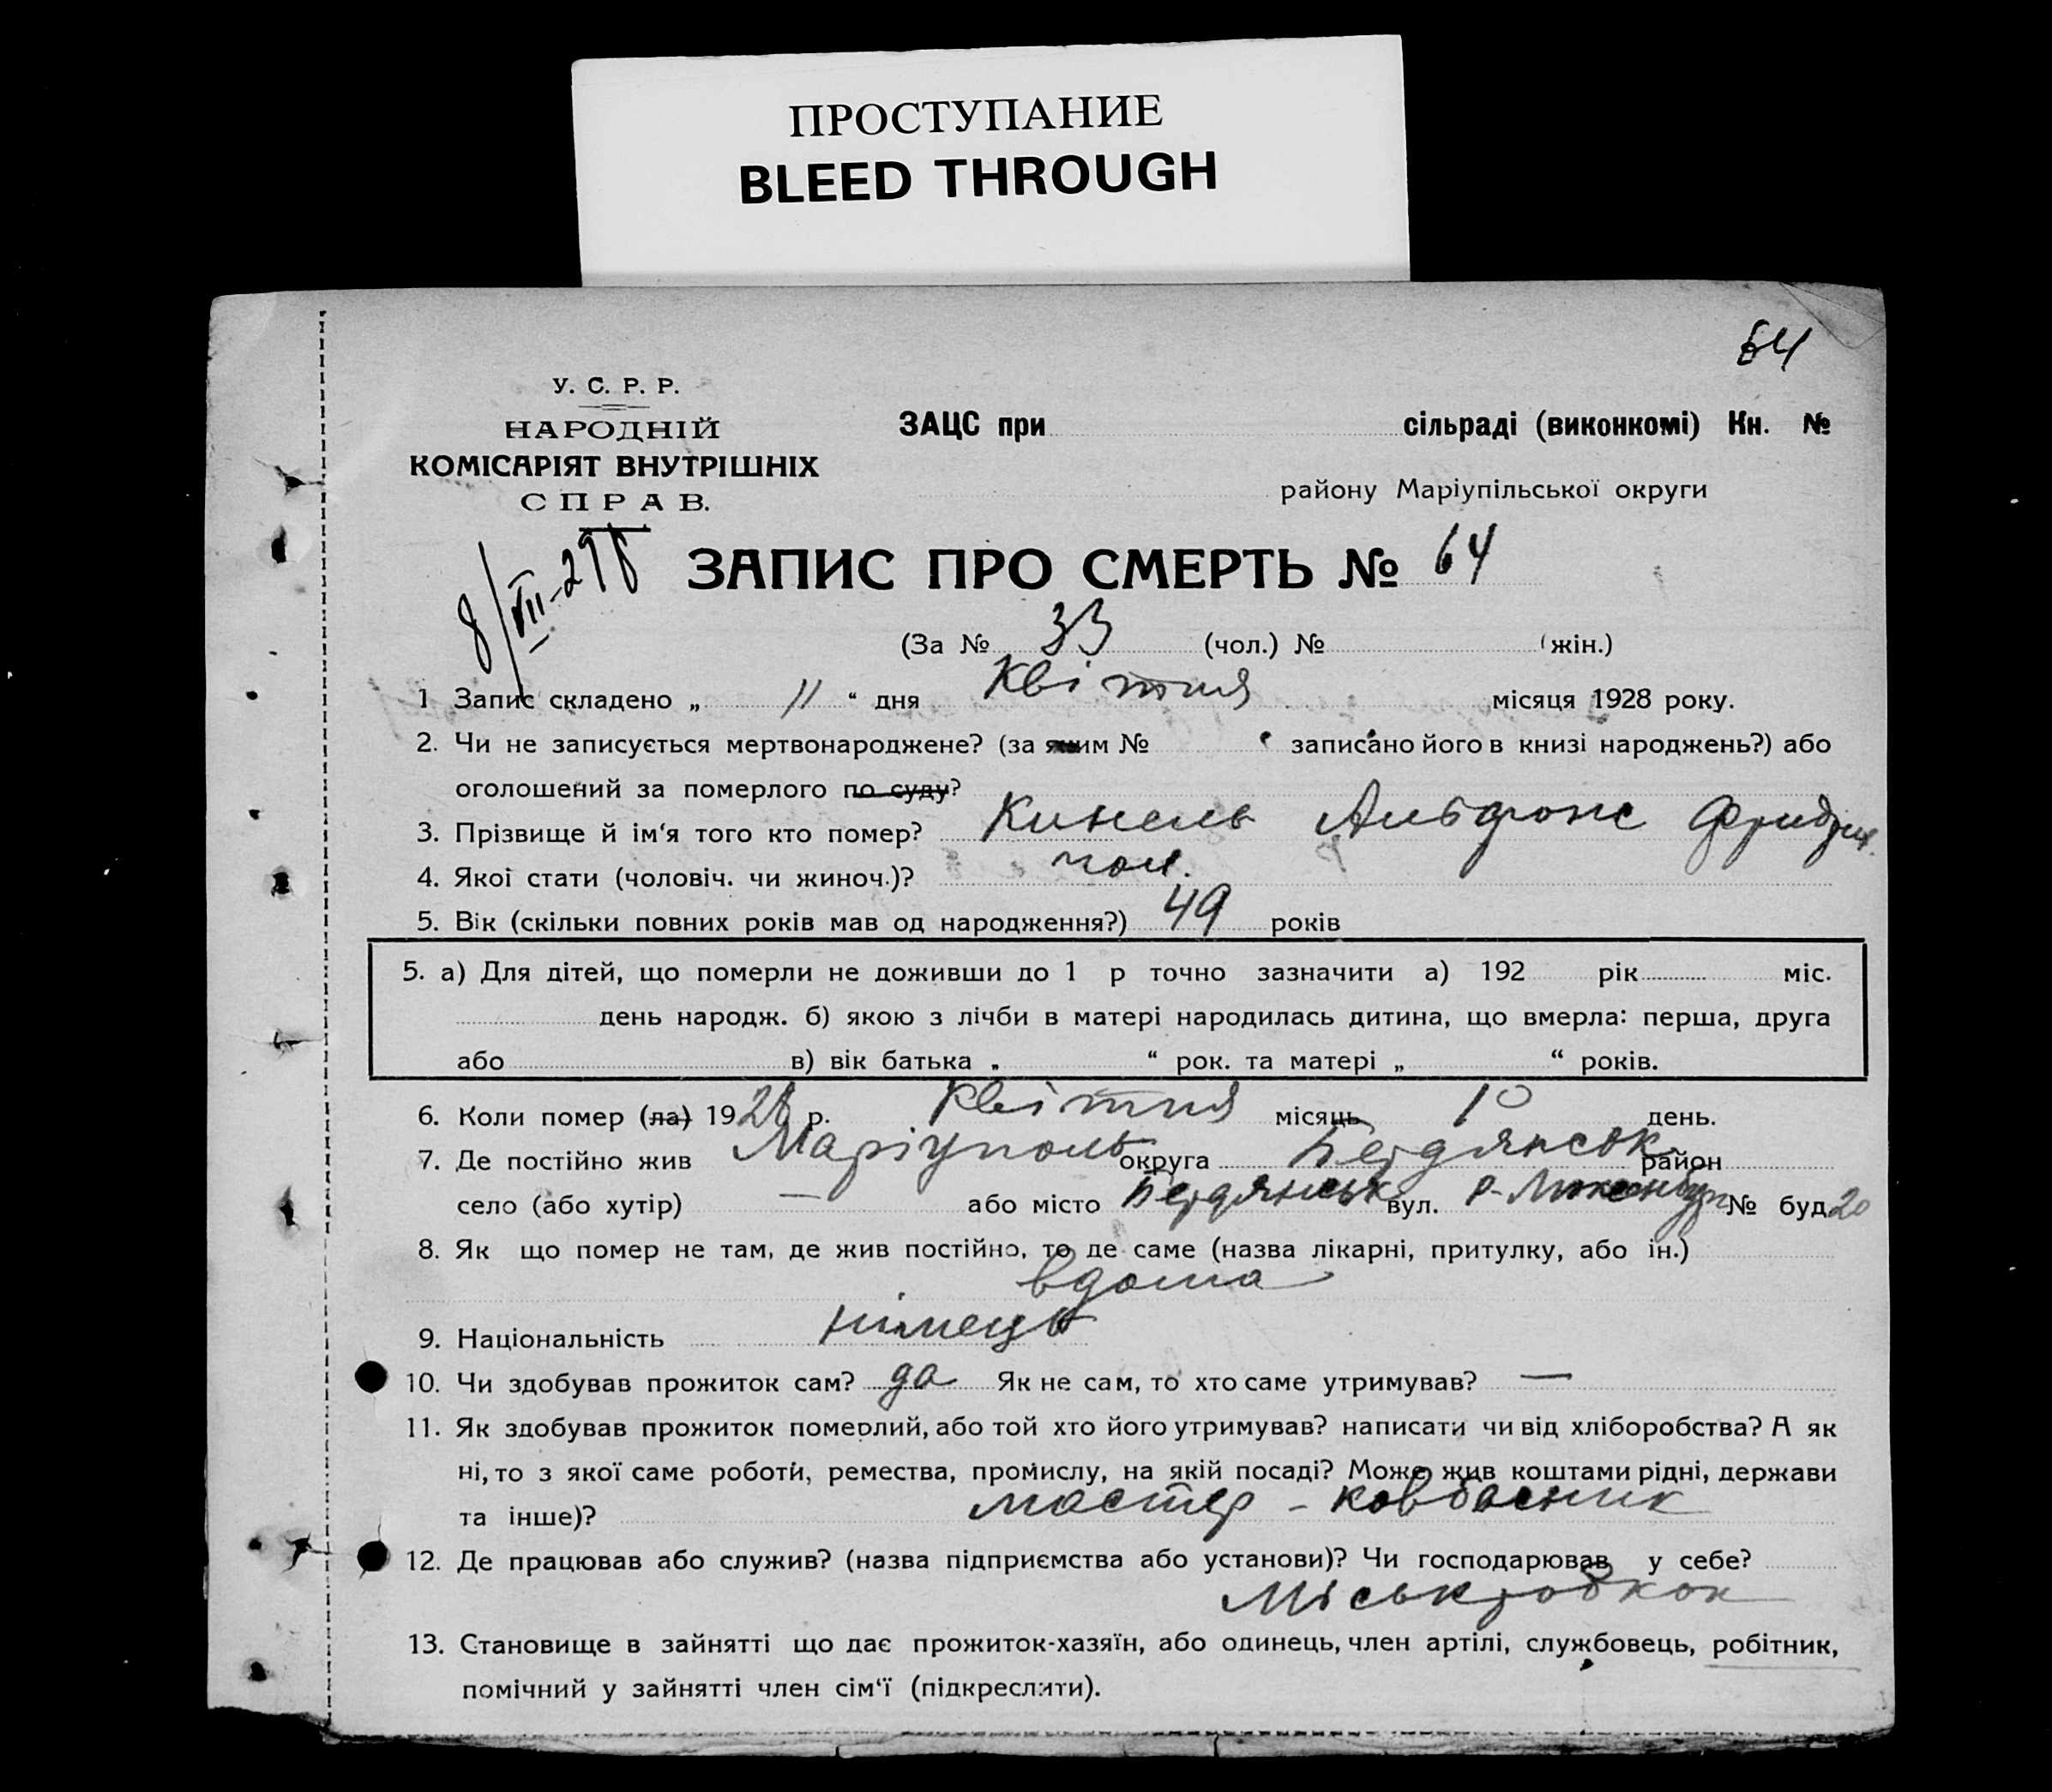 ПРОСТУПАНИЕ
BLEED THROUGH
64
У. С. Р. Р.
НАРОДНІЙ
КОМІСАРІЯТ ВНУТРІШНІХ
СПРАВ.
ЗАЦС при сільраді (виконкомі) Кн. №
району Маріупільської округи
8/VII-29
ЗАПИС ПРО СМЕРТЬ № 64
(За № 33 (чол.) № (жін.)
1 Запис складено „ 11 “ дня Квітня місяця 1928 року.
2. Чи не записується мертвонароджене? (за яким № записано його в книзі народжень?) або
оголошений за померлого по суду?
3. Прізвище й ім‘я того кто помер? Кинель Альфонс Фридрих.
4. Якої стати (чоловіч. чи жиноч.)? чол.
5. Вік (скільки повних років мав од народження?) 49 років
5. а) Для дітей, що померли не доживши до 1 р точно зазначити а) 192 рік міс.
день народж. б) якою з лічби в матері народилась дитина, що вмерла: перша, друга
або в) вік батька „ “ рок. та матері „ “ років.
6. Коли помер (ла) 1928 р. Квітня місяць 10 день.
7. Де постійно жив Маріуполь округа Бердянськ район
село (або хутір) — або місто Бердянськ вул. Р- № буд 20
8. Як що помер не там, де жив постійно, то де саме (назва лікарні, притулку, або ін.)
вдома
9. Національність німець
10. Чи здобував прожиток сам? да Як не сам, то хто саме утримував? —
11. Як здобував прожиток померлий, або той хто його утримував? написати чи від хліборобства? А як
ні, то з якої саме роботи, ремества, промислу, на якій посаді? Може жив коштами рідні, держави
та інше)? мастер - ковбасник
12. Де працював або служив? (назва підприємства або установи)? Чи господарював у себе?
Міськробкоп
13. Становище в зайнятті що дає прожиток-хазяїн, або одинець, член артілі, службовець, робітник,
помічний у зайнятті член сім‘ї (підкреслити).